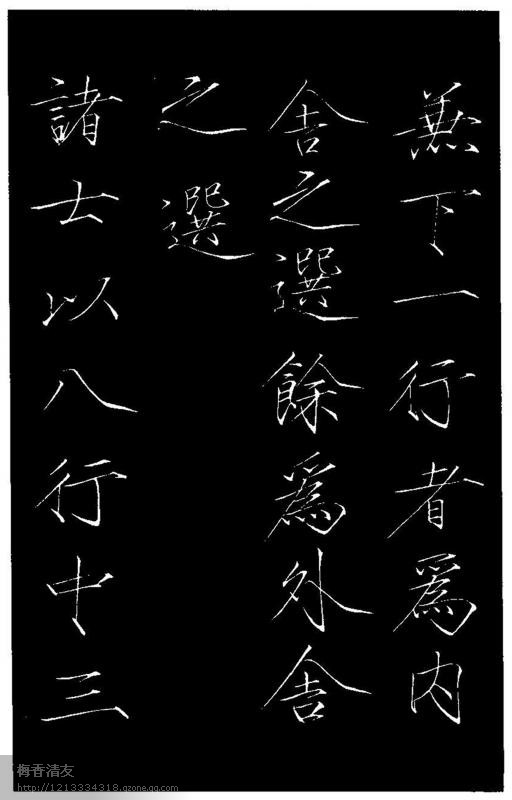 兼下一行者爲內
舍之選餘爲外舍
之選
諸士以八行中三
梅香清友
http://1213334318.qzone.qq.com